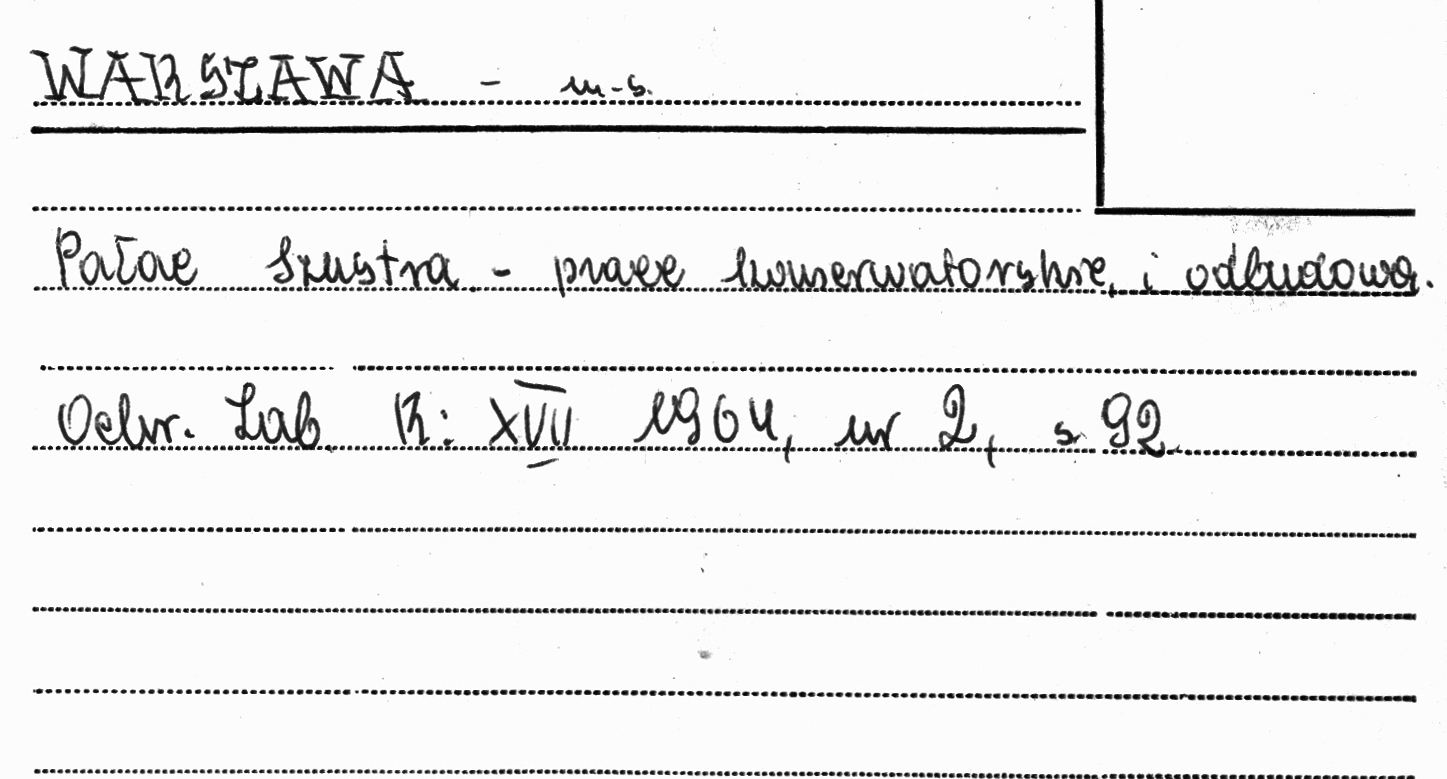 WARSZAWA - m-s.
Pałac Szustra - prace konserwatorskie, i odbudowa.
Ochr. Zab. R: XVII 1964, nr 2, s. 92